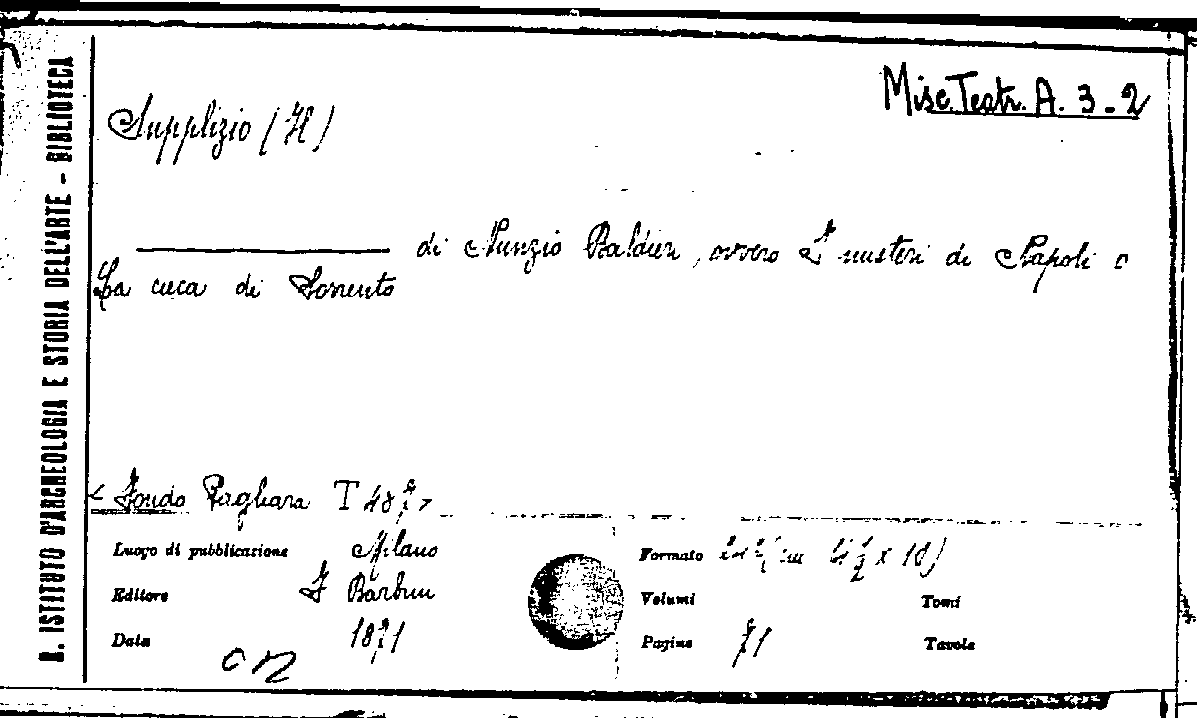 R. ISTITUTO D'ARCHEOLOGIA E STORIA DELL'ARTE - BIBLIOTECA
Misc. Teatr. A. 3-2
Supplizio (Il)
di Nunzio Baldieri, ovvero I misteri di Napoli o
La cieca di Sorrento
< Fondo Pagliara T 487 >
Luogo di pubblicazione Milano
Formato
Editore F Barbini
Volumi
Tomi
Data 1871
Pagine 71
Tavole